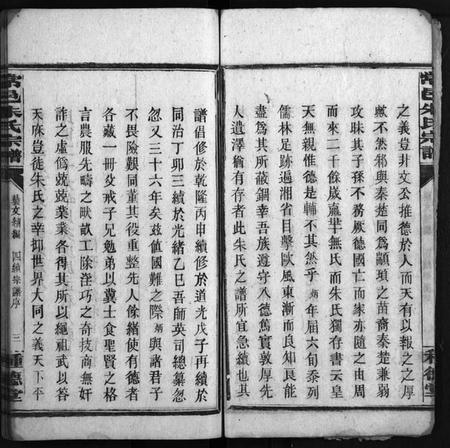 常邑朱氏宗譜
之義豈非文公推德於人而天有以報之之厚
歟不然邾與秦楚同為顓頊之苗裔秦楚兼弱
攻昧其子孫不務厥德國亡而家亦隨之由周
而來二千餘歲嬴芈無氏而朱氏獨存書云皇
天無親惟德是輔不其然乎 年屆六旬忝列
儒林足跡遍湘省目擊歐風東漸而良知良能
變其所蔽錮幸吾族遵守入德舊實敦厚先
人遺澤猶有存者此朱氏之譜所宜急續也其
種德堂
常邑朱氏宗譜
譜倡修於乾隆丙申續修於道光戊子再續於
同治丁卯三續於光緒乙巳吾師英司總纂忽
忽又三十六年矣茲值國難之際 與諸君子
不畏險艱同董其役重整先人餘緒使有德者
各藏一冊父戒子兄勉弟以翼士食聖賢之格
言農服先疇之畎畝工除淫巧之奇技商無奸
詐之虛偽兢兢業業各得其所以繩祖武以答
天庥豈徒朱氏之幸抑世界大同之義天下平
藝文類編 四續朱譜序 三
種德堂